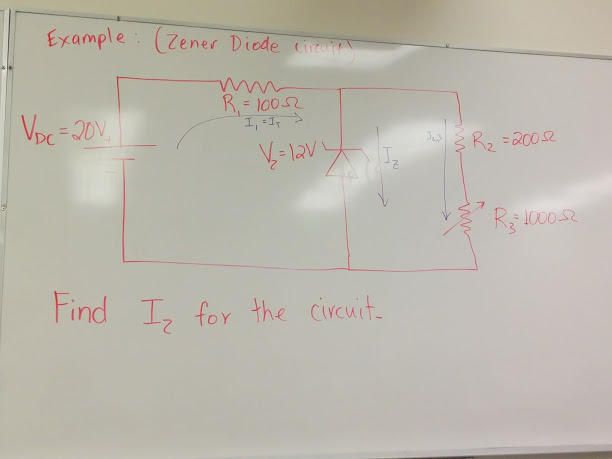 Example: (Zener Diode circuit)
R₁=100Ω
V_DC=20V
I₁=I_T
V_Z=12V
I_Z
R₂=200Ω
R₃=1000Ω
Find I_Z for the circuit.